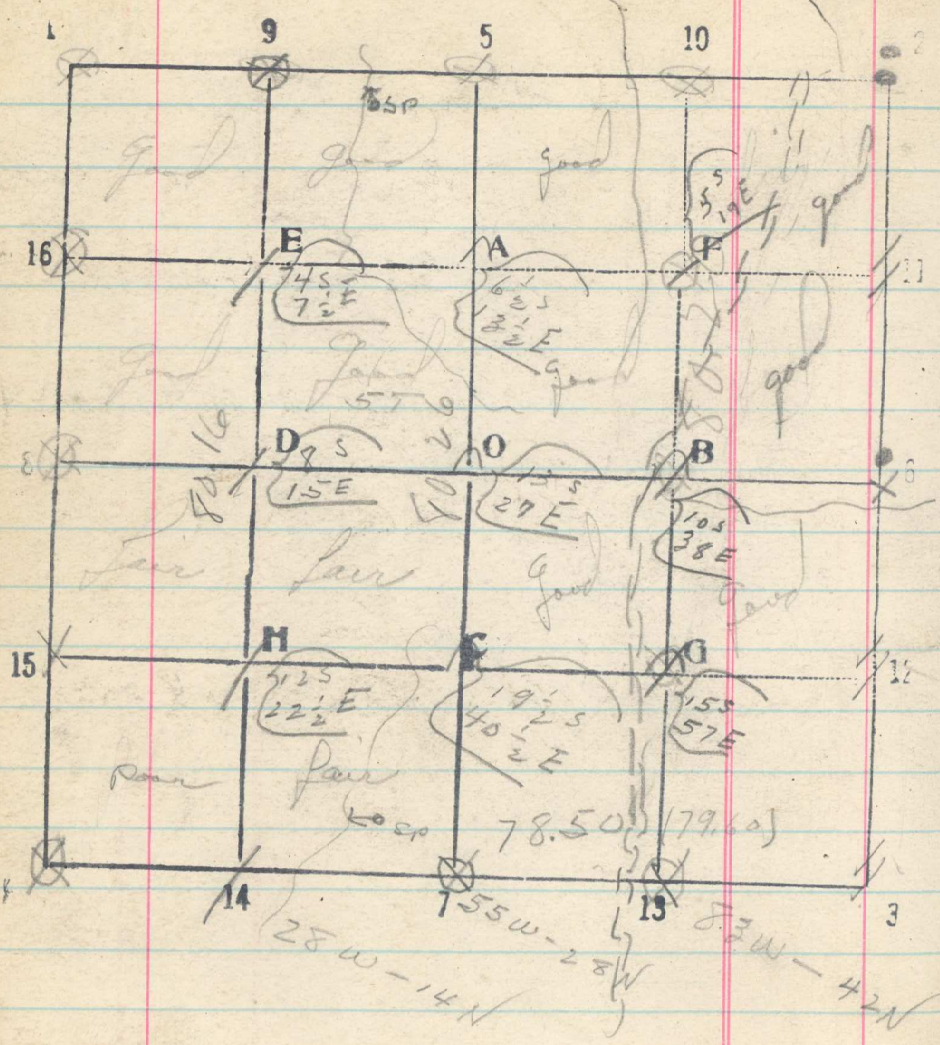 1 9 5 10
SP
good good good good
16 E A F 11
5
19 E
4 S
7 1/2 E
6 1/2 S
good good good good
8 D O B 6
80.16
8 S
15 E
13 S
27 E
10 S
38 E
Fair fair good good
15 H C G 12
12 S
22 1/2 E
19 1/2 S
40 1/2 E
15 S
57 E
poor fair
SP
78.50 (79.60)
14 7 13 3
28 W - 14 N
55 W - 28 N
83 W - 42 N